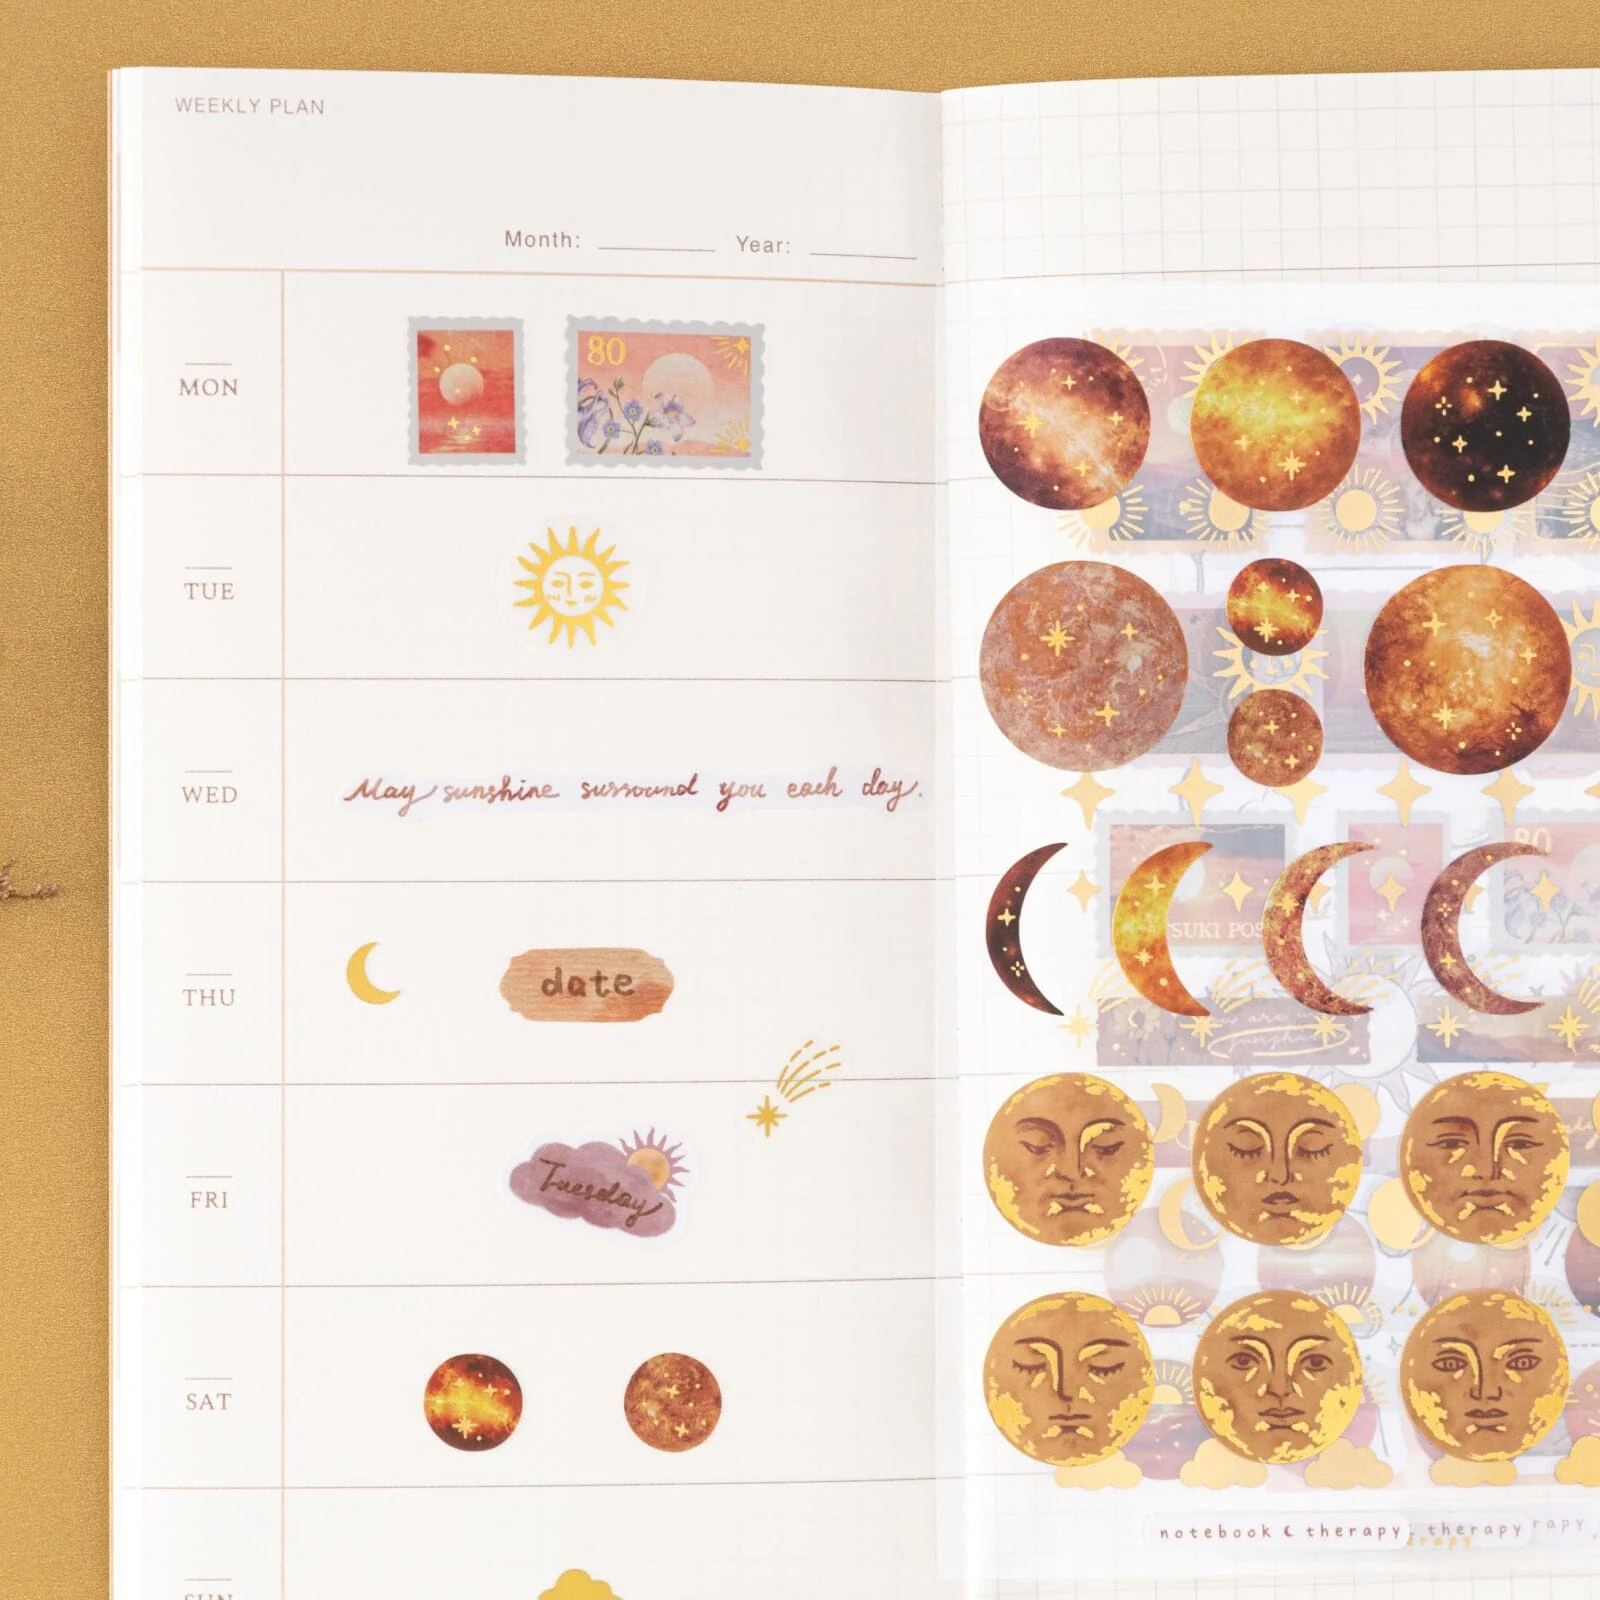 WEEKLY PLAN
Month: Year:
MON
80
TUE
WED
May sunshine surround you each day.
THU
date
FRI
Tuesday
SAT
SUN
80
SUKI POS
sunshine
notebook therapy therapy rapy